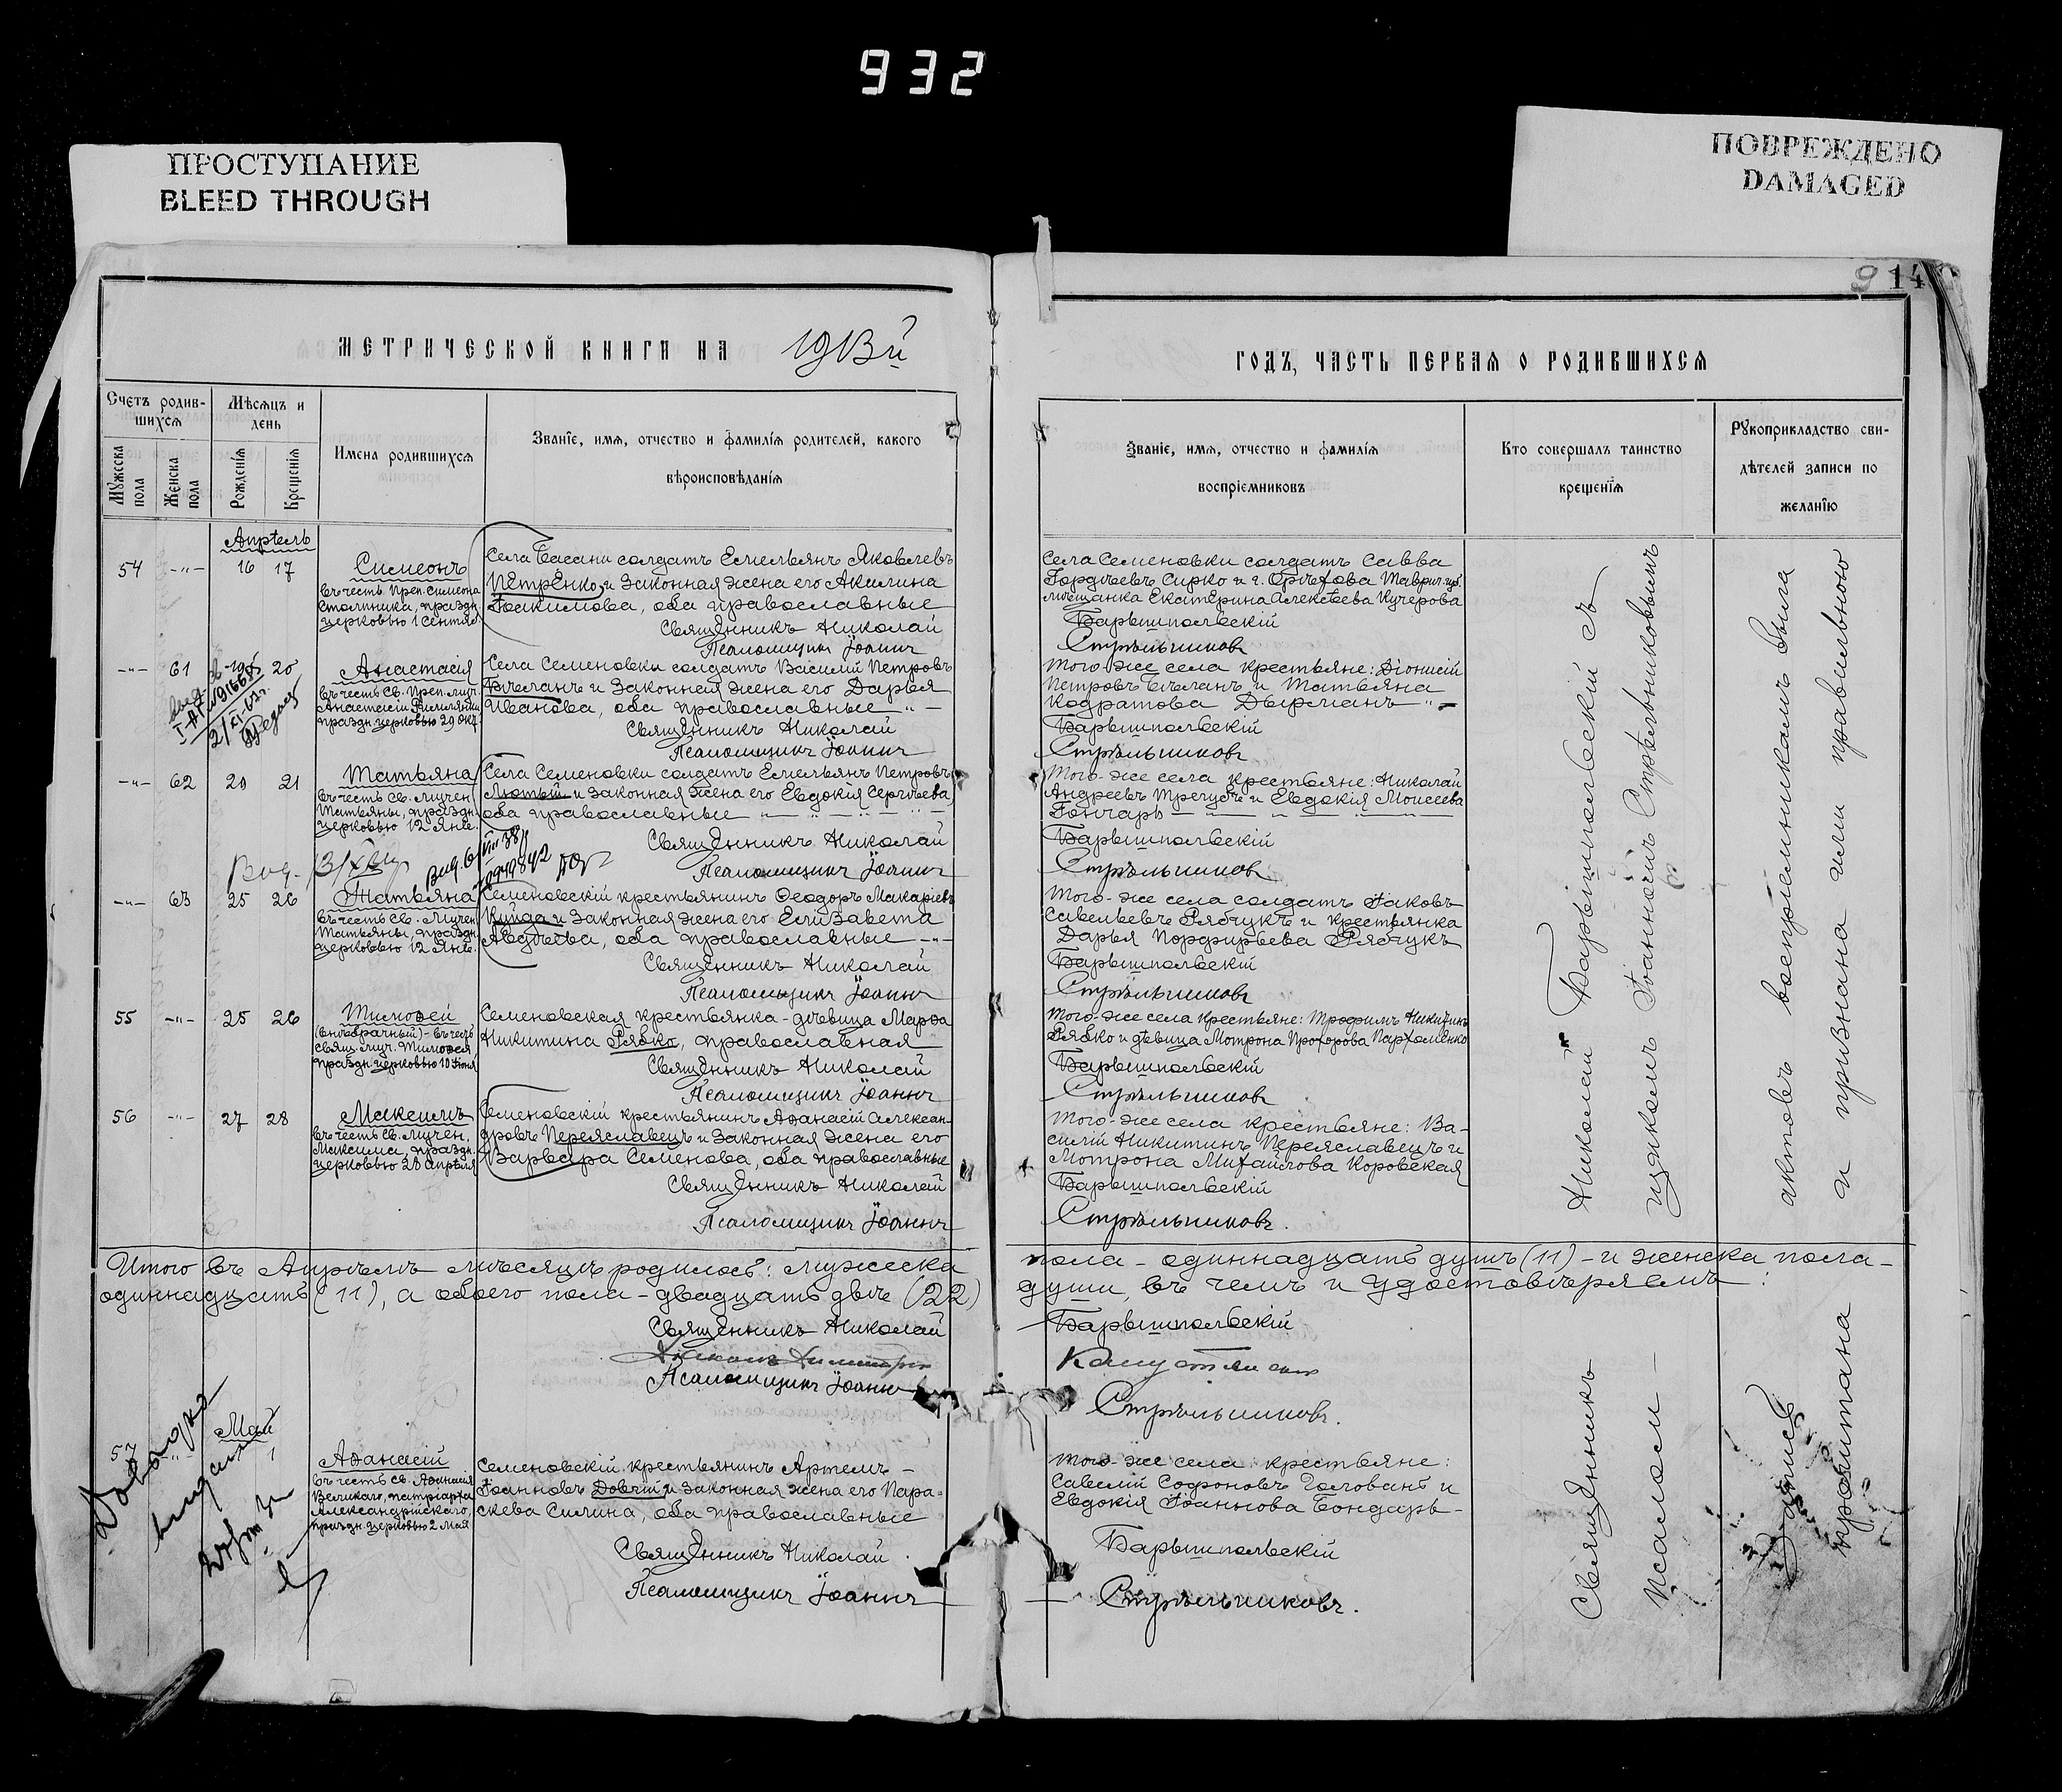 932
ПРОСТУПАНИЕ
BLEED THROUGH
ПОВРЕЖДЕНО
DAMAGED
14
МЕТРИЧЕСКОЙ КНИГИ НА 1913й
ГОДЪ, ЧАСТЬ ПЕРВАЯ О РОДИВШИХСЯ
Счетъ родив-
шихся
Мужеска пола
Женска пола
Мѣсяцъ и
день
Рожденія
Крещенія
Имена родившихся
Званіе, имя, отчество и фамилія родителей, какого
вѣроисповѣданія
Званіе, имя, отчество и фамилія
воспріемниковъ
Кто совершалъ таинство
крещенія
Рукоприкладство сви-
дѣтелей записи по
желанію
Апрѣль
54 -"- 16 17
Симеонъ
въ честь Преп. Симеона
Столпника, праздн.
церковью 1 Сентяб.
Села Басани солдатъ Емельянъ Яковлевъ
Петренко и законная жена его Акилина
Іоакимова, оба православные
Священникъ Николай
Псаломщикъ Іоаннъ
Села Семеновки солдатъ Савва
Гордѣевъ Сирко и г. Орѣхова Таврич. губ.
мѣщанка Екатерина Алексѣева Кучерова
Барышпольскій
Стрѣльниковъ
-"- 61 19 20
Анастасія
въ честь Св. Преп. муч.
Анастасіи Римляныни
праздн. церковью 29 Окт.
Села Семеновки солдатъ Василій Петровъ
Бѣланъ и законная жена его Дарья
Иванова, оба православные -"-
Священникъ Николай
Псаломщикъ Іоаннъ
Того-же села крестьяне: Діонисій
Петровъ Бѣланъ и Татьяна
Кодратова Дырманъ -"-
Барышпольскій
Стрѣльниковъ
-"- 62 20 21
Татьяна
въ честь Св. мучен.
Татьяны, праздн.
церковью 12 Янв.
Села Семеновки солдатъ Емельянъ Петровъ
Лютый и законная жена его Евдокія Сергѣева,
оба православные
Священникъ Николай
Псаломщикъ Іоаннъ
Того-же села крестьяне: Николай
Андреевъ Трегубъ и Евдокія Моисеева
Гончаръ
Барышпольскій
Стрѣльниковъ
-"- 63 25 26
Татьяна
въ честь Св. Мучен.
Татьяны, праздн.
церковью 12 Янв.
Семеновскій крестьянинъ Ѳеодоръ Макаріевъ
Кунда и законная жена его Елизавета
Авдѣева, оба православные -"-
Священникъ Николай
Псаломщикъ Іоаннъ
Того-же села солдатъ Іаковъ
Савельевъ Рябчукъ и крестьянка
Дарья Порфирьева Рябчукъ
Барышпольскій
Стрѣльниковъ
55 -"- 25 26
Тимоѳей
(внѣбрачный) - въ честь
свящ. муч. Тимоѳея
праздн. церковью 10 Іюня
Семеновская крестьянка-дѣвица Марѳа
Никитина Рябко, православная
Священникъ Николай
Псаломщикъ Іоаннъ
Того-же села крестьяне: Трофимъ Никитинъ
Рябко и дѣвица Мотрона Прохорова Пархоменко
Барышпольскій
Стрѣльниковъ
56 -"- 27 28
Максимъ
въ честь Св. Мучен.
Максима, праздн.
церковью 28 Апрѣля
Семеновскій крестьянинъ Аѳанасій Алексан-
дровъ Переяславецъ и законная жена его
Варвара Семенова, оба православные
Священникъ Николай
Псаломщикъ Іоаннъ
Того-же села крестьяне: Ва-
силій Никитинъ Переяславецъ и
Мотрона Михайлова Коровская
Барышпольскій
Стрѣльниковъ.
Николай Барышпольскій съ
щикомъ Іоанномъ Стрѣльниковымъ
актовъ воспріемникамъ была
и признана ими правильною
Итого въ Апрѣлѣ мѣсяцѣ родилось: мужеска
пола - одиннадцать душъ (11) - и женска пола -
одиннадцать (11), а обоего пола - двадцать двѣ (22)
души, въ чемъ и удостовѣряемъ:
Священникъ Николай
Барышпольскій
Псаломщикъ Іоаннъ
Стрѣльниковъ.
Май
57 -"- 1
Аѳанасій
въ честь Св. Аѳанасія
Великаго, патріарха
Александрійскаго,
праздн. церковью 2 Мая
Семеновскій крестьянинъ Артемъ -
Іоанновъ Довгій и законная жена его Пара-
скева Силина, оба православные
Священникъ Николай
Псаломщикъ Іоаннъ
Того-же села крестьяне:
Савелій Софроновъ Головань и
Евдокія Іоаннова Бондарь -
Барышпольскій
Стрѣльниковъ.
Священникъ
псалом -
Запись
прочитана